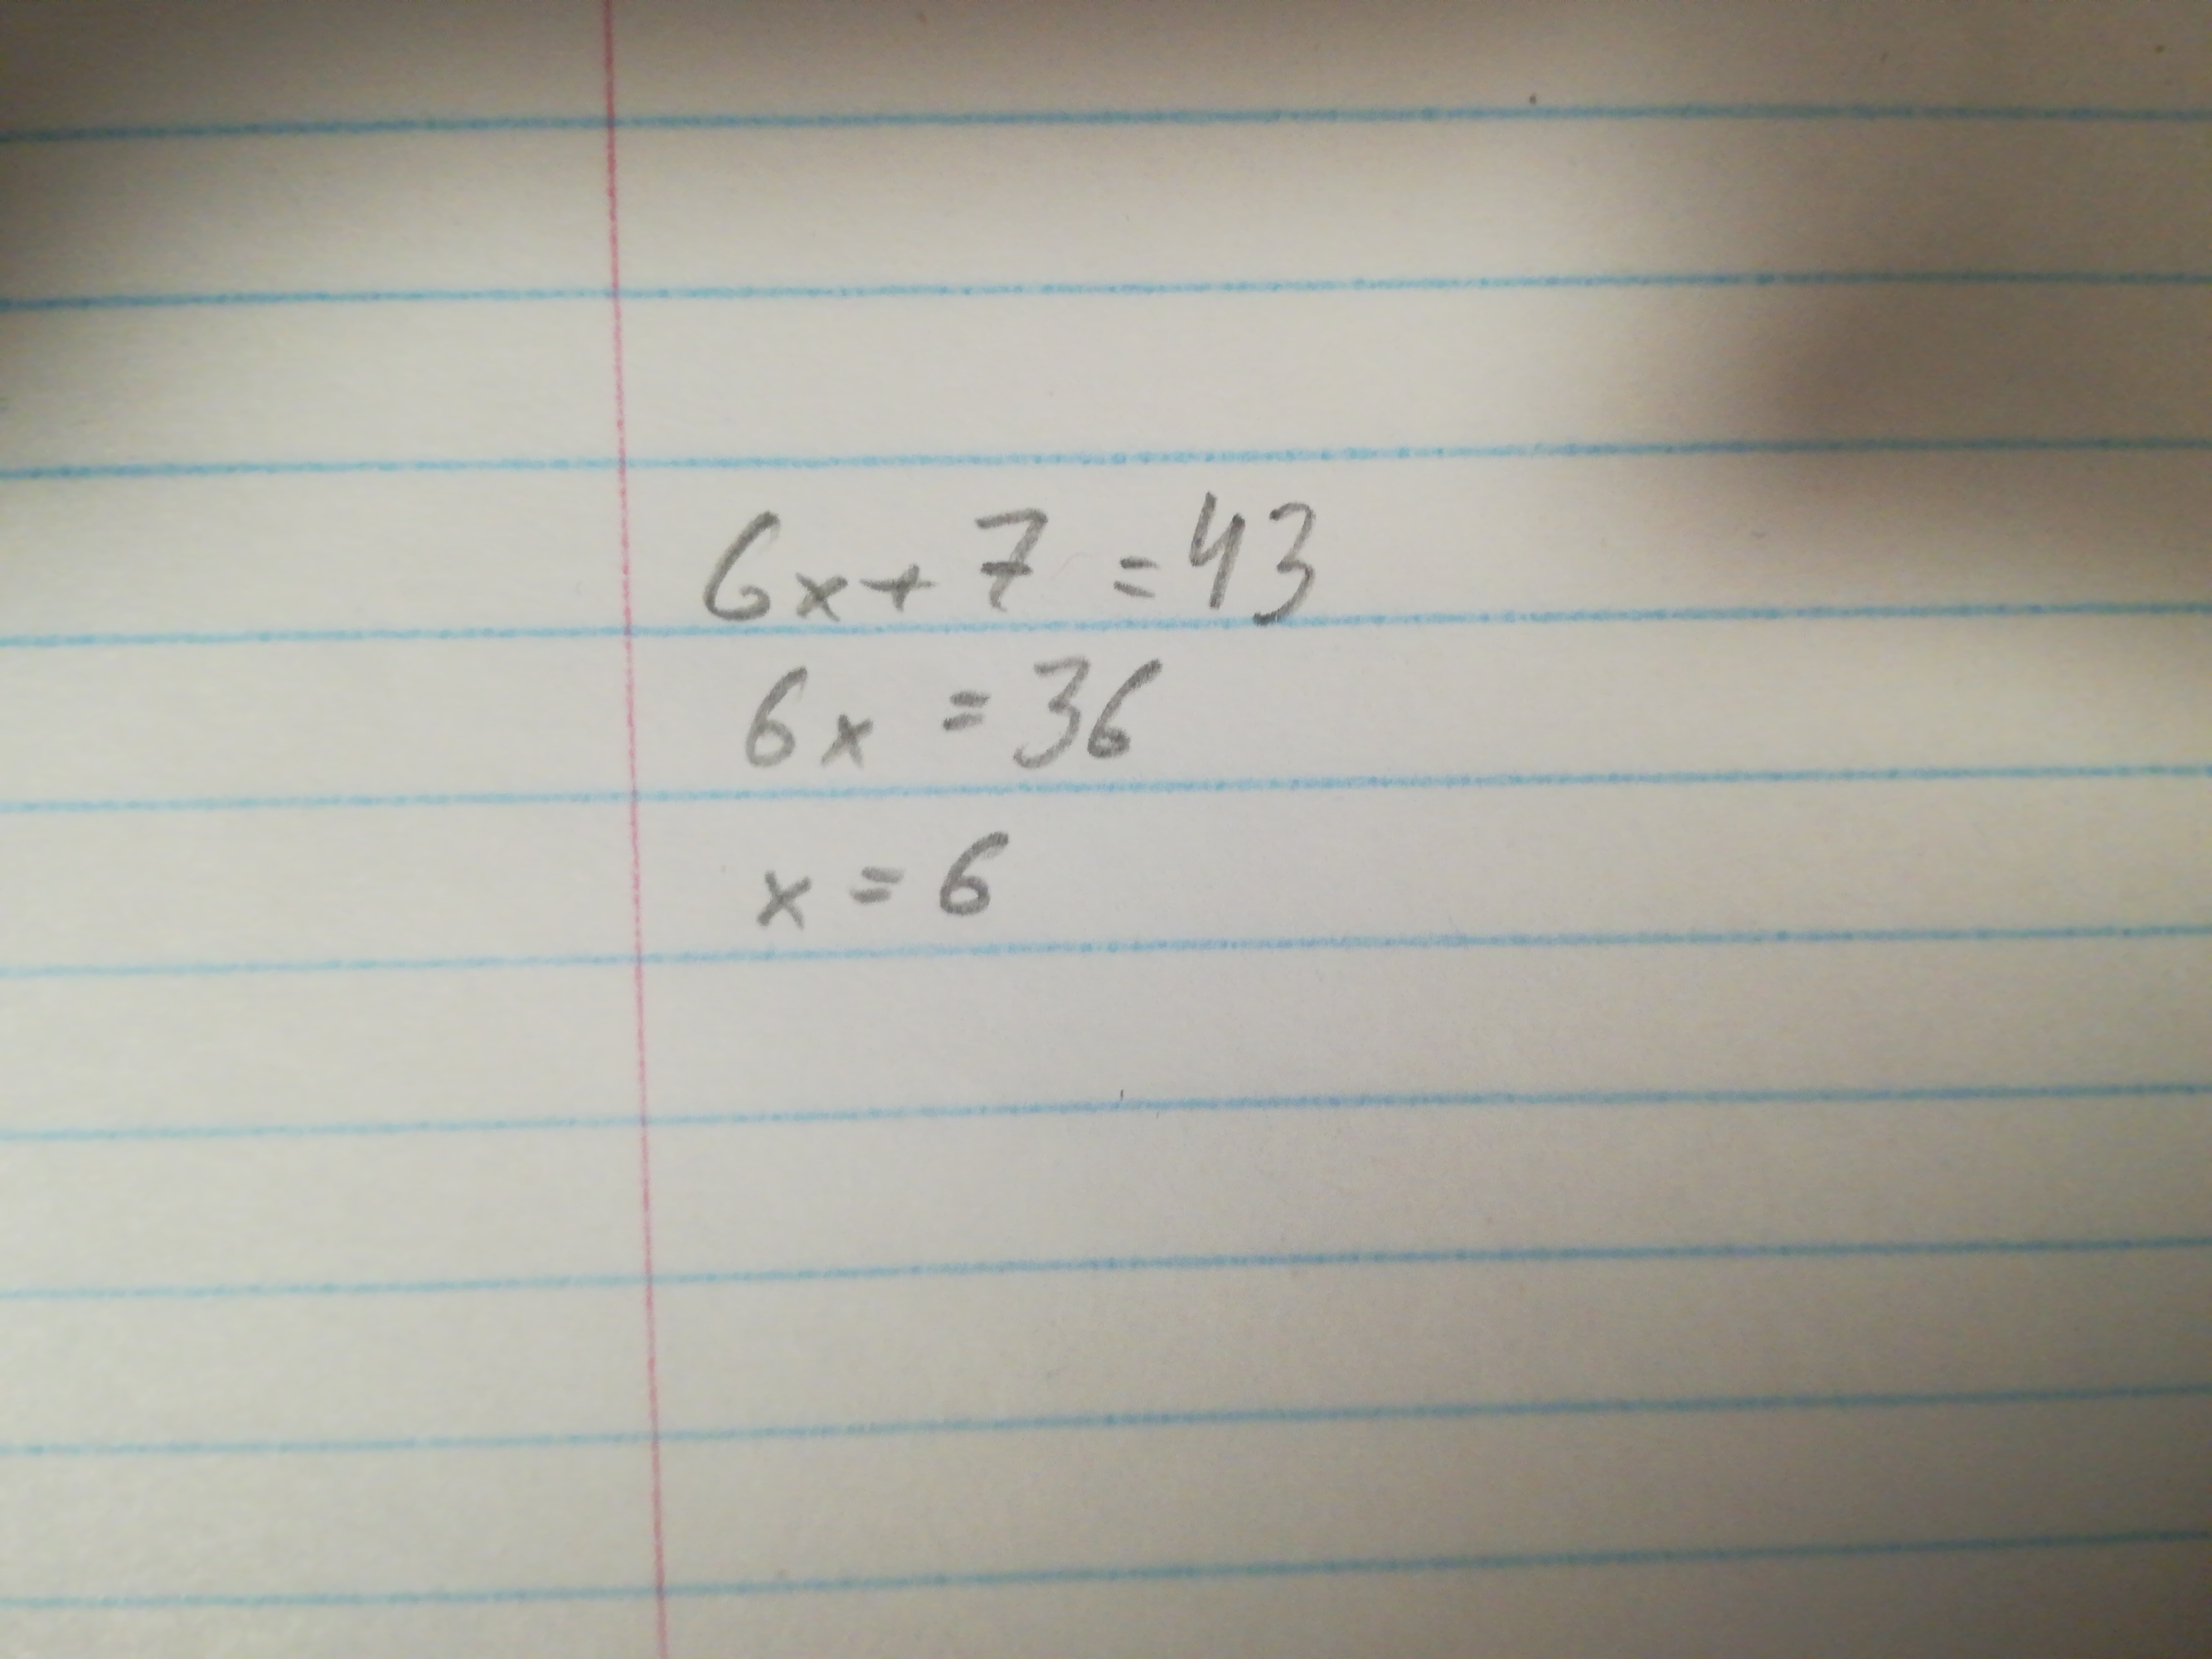 6x+7=43
6x=36
x=6